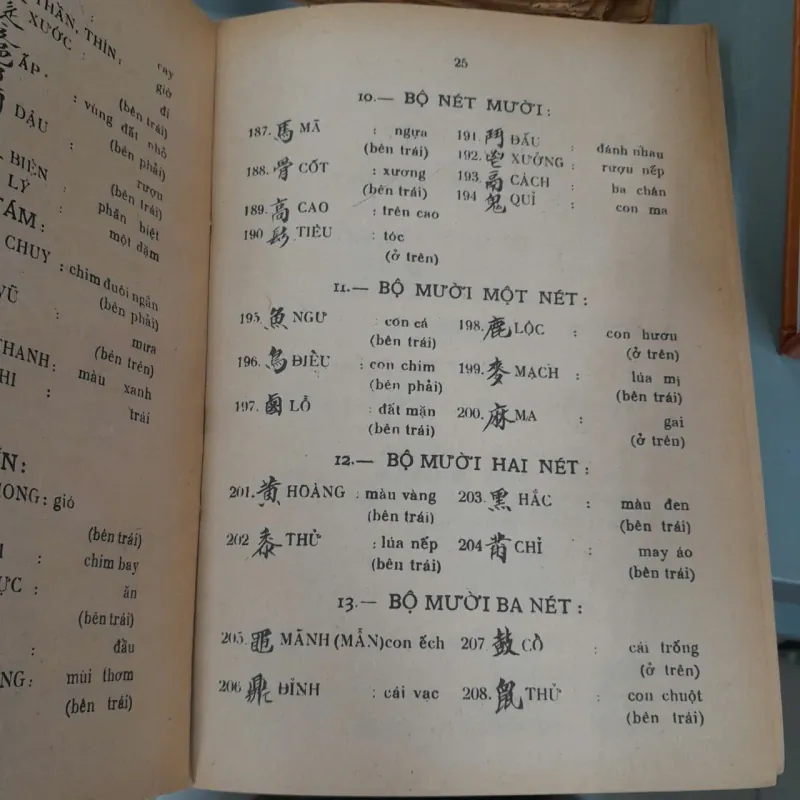 THẦN, THÌN:
XƯỚC :
cay
giờ
ẤP.
đi
(bên trái)
: vùng đất nhỏ
DẬU :
(bên phải)
rượu
BIỆN
(bên trái)
LÝ
phân biệt
TÁM:
một dặm
CHUY : chim đuôi ngắn
(bên phải)
VŨ
mưa
(bên trên)
THANH: màu xanh
HI :
trái
ÍN:
HONG: gió
(bên trái)
: chim bay
ỰC : ăn
(bên trái)
: đầu
NG: mùi thơm
(bên trái)
25
10.— BỘ NÉT MƯỜI:
187. 馬 MÃ : ngựa
(bên trái)
188. 骨 CỐT : xương
(bên trái)
189. 高 CAO : trên cao
190 髟 TIÊU : tóc
(ở trên)
191. 鬥 ĐẤU : đánh nhau
192. 鬯 XƯỞNG : rượu nếp
193. 鬲 CÁCH : ba chân
194 鬼 QUỈ : con ma
11.— BỘ MƯỜI MỘT NÉT:
195. 魚 NGƯ : con cá
(bên trái)
196. 鳥 ĐIỂU : con chim
(bên phải)
197. 鹵 LỖ : đất mặn
(bên trái)
198. 鹿 LỘC : con hươu
(ở trên)
199. 麥 MẠCH : lúa mị
(bên trái)
200. 麻 MA : gai
(ở trên)
12.— BỘ MƯỜI HAI NÉT:
201. 黄 HOÀNG : màu vàng
(bên trái)
202 黍 THỬ : lúa nếp
(bên trái)
203. 黑 HẮC : màu đen
(bên trái)
204 黹 CHỈ : may áo
(bên trái)
13.— BỘ MƯỜI BA NÉT:
205. 黽 MÃNH (MẪN) con ếch
206 鼎 ĐỈNH : cái vạc
207 鼓 CỔ : cái trống
(ở trên)
208. 鼠 THỬ : con chuột
(bên trái)